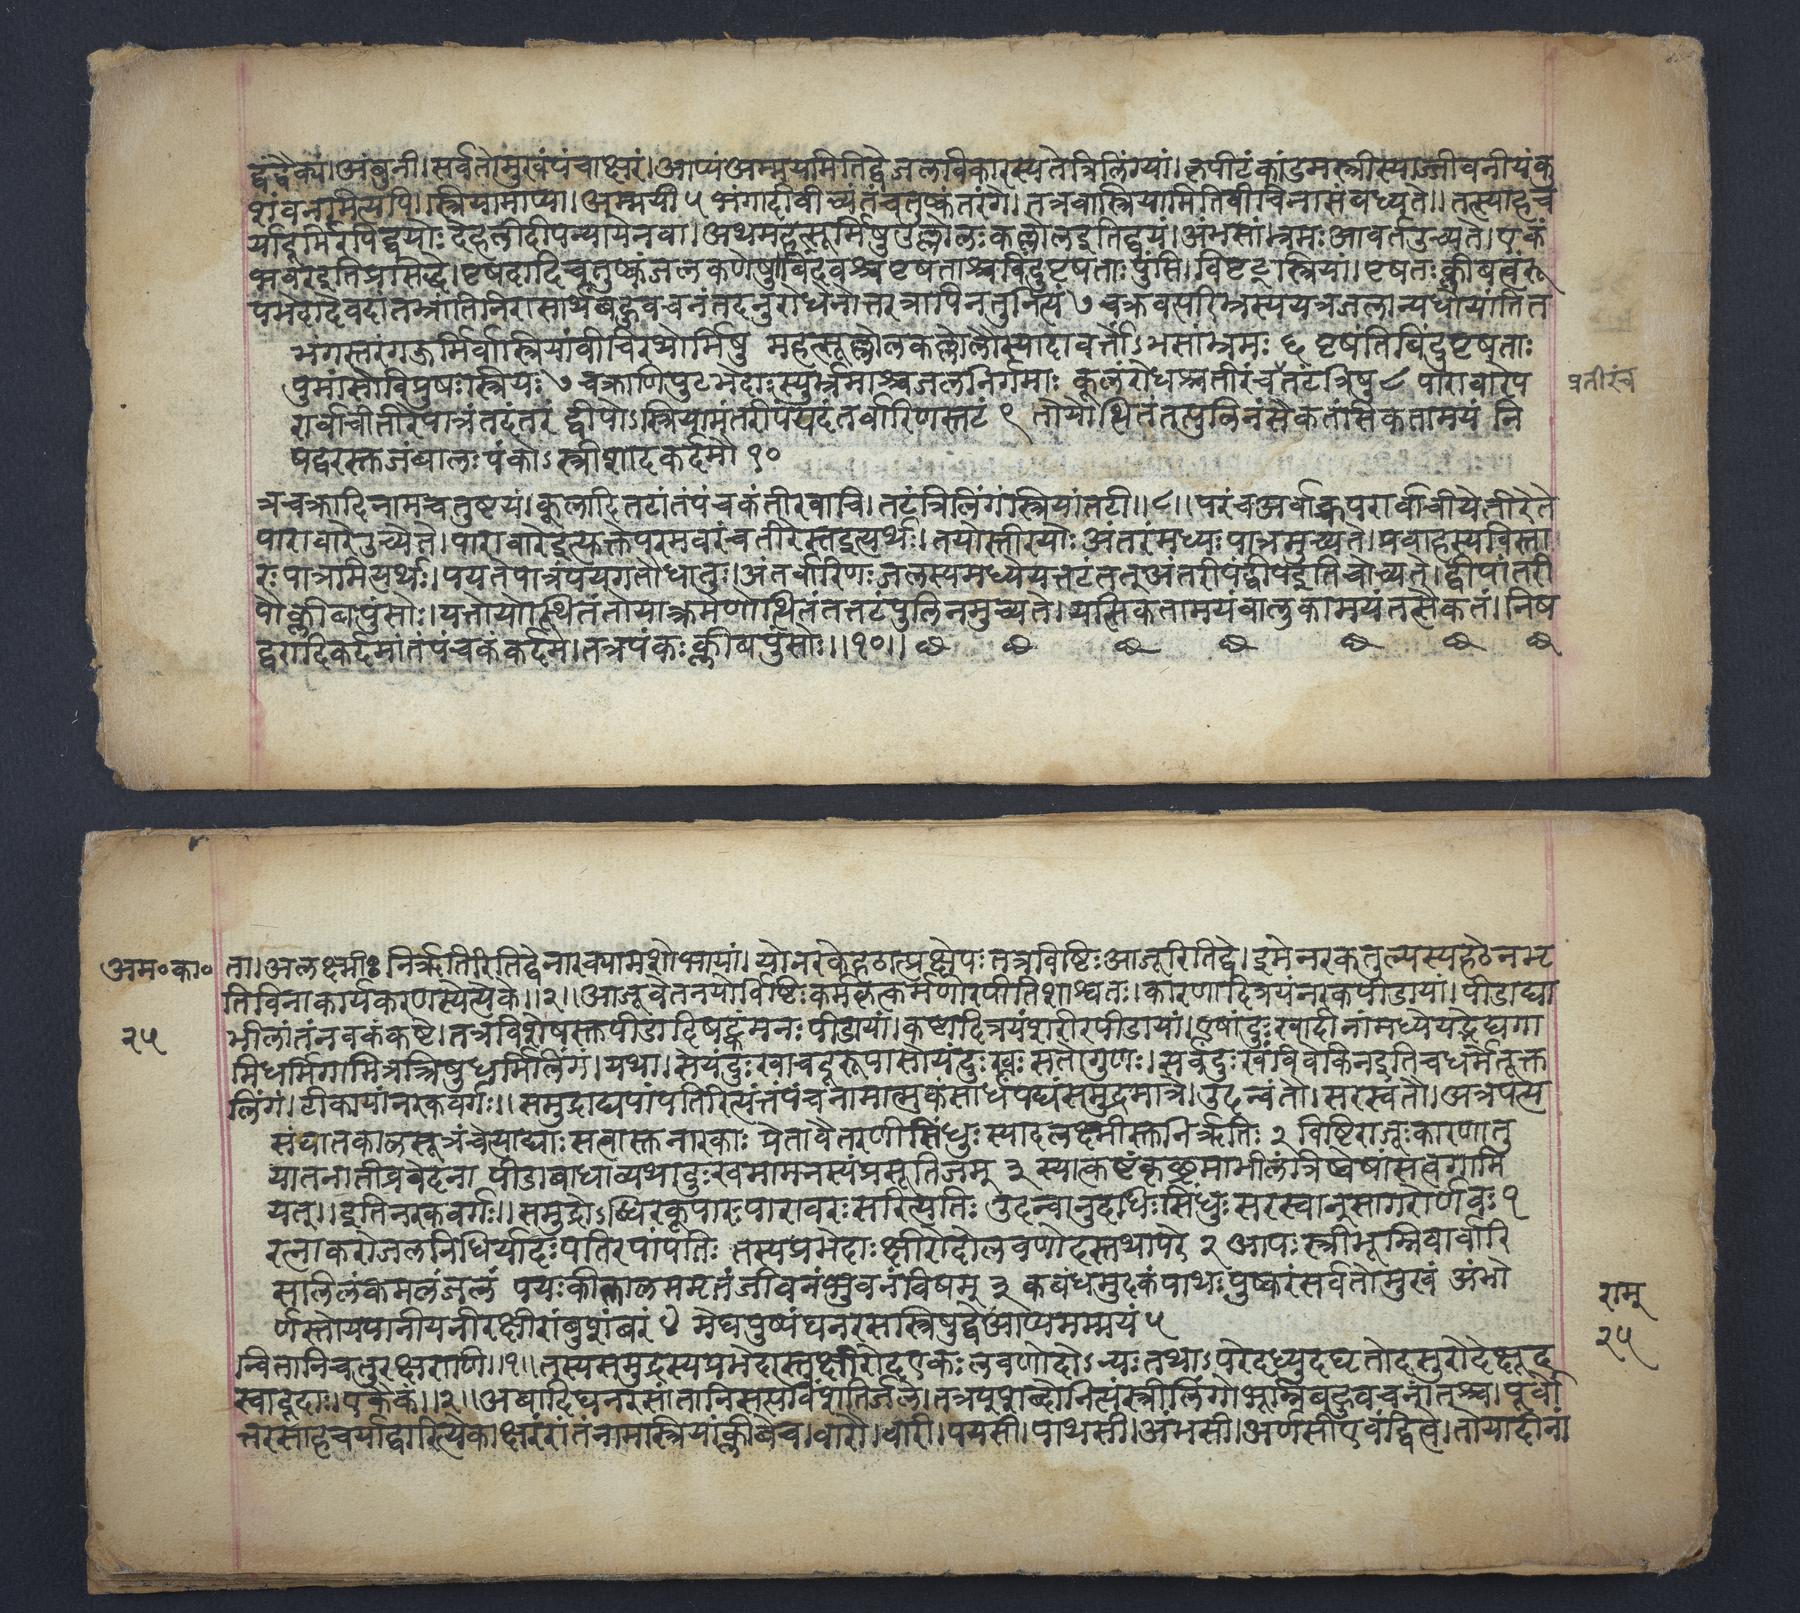 द्वंद्वैक्यं।अंबुनी।सर्वतोमुखंपंचाक्षरं।आप्यंअम्मयमितिद्वेजलविकारस्यतेत्रिलिंग्यां।कृपीटंकांडमस्त्रीस्याज्जीवनीयंकु
शंवनमित्यपि।स्त्रियामाप्या।अम्मयी५भंगादीवीच्यंतंचतुष्कंतरंगे।तत्रवास्त्रियामितिवीचिनासंबध्यते॥तस्याहच
र्यादूर्मिरपिद्वयोःदेहलीदीपन्यायेनवा।अथमहत्सूर्मिषुउल्लोलःकल्लोलइतिद्वयं।अंभसां।भ्रमःआवर्तउच्यते।एकं
भवरइतिप्रसिद्धे।पृषदादिचतुष्कंजलकणेषुबिंदवश्चपृषताश्चबिंदुपृषताःपुंसि।विप्रुट्स्त्रियां।पृषतःक्लीबत्वंरू
पभेदादेवदांतभ्रांतिनिरासार्थंबहुवचनंतदनुरोधेनोत्तरत्रापिनतुनित्यं७चक्रवत्परिभ्रस्ययत्रजलान्यधोयांतित
भंगस्तरंगऊर्मिर्वास्त्रियांवीचिरथोर्मिषु महत्सूल्लोलकल्लोलौस्यादावर्त्तोऽंभसांभ्रमः ६ पृषंतिबिंदुपृषताः
पुमांसोविप्रुषःस्त्रियः ७ चक्राणिपुटभेदाःस्युर्भ्रमाश्चजलनिर्गमाः कूलंरोधश्चतीरंचतटंत्रिषु ८ पारावारेप
प्रतीरंच
रार्वाचीतीरेपात्रंतदंतरं द्वीपोऽस्त्रियामंतरीपंयदंतर्वारिणस्तटं ९ तोयोत्थितंतत्पुलिनंसैकतंसिकतामयं नि
षद्वरस्तुजंबालःपंकोऽस्त्रीशादकर्दमौ १०
त्रचक्रादिनामचतुष्टयं।कूलादितटांतंपंचकंतीरवाचि।तटंत्रिलिंगंस्त्रियांतटी॥८॥परंचअर्वाक्चपरार्वाचीयेतीरेते
पारावारेउच्येते।पारावारेइत्युक्तेपरमवरंचतीरेस्तइत्यर्थः।तयोस्तीरयोःअंतरंमध्यःपात्रमुच्यते।प्रवाहस्यविस्ता
रःपात्रमित्यर्थः।पयतेपात्रंपयगतौधातुः।अंतर्वारिणःजलस्यमध्येयत्तटंतत्अंतरीपंद्वीपंइतिचोच्यते।द्वीपांतरी
पौक्लीबपुंसोः।यत्तोयोत्स्थितंतोयाक्रमणोत्थितंतत्तटंपुलिनमुच्यते।यत्सिकतामयंवालुकामयंतत्सैकतं।निष
द्वरादिकर्दमांतंपंचकंकर्दमे।तत्रपंकःक्लीबपुंसोः॥१०॥
अम॰का॰
२५
ता।अलक्ष्मीःनिर्ऋतिरितिद्वेनारक्यामशोभायां।योनरकेहठात्प्रक्षेपःतत्रविष्टिःआजूरितिद्वे।इमेनरकतुल्यस्यहठेनभृ
तिविनाकार्यकरणस्येत्येके॥२॥आजूवेतनयोर्विष्टिःकर्मकृत्कर्मणोरपीतिशाश्वतः।कारणादित्रयंनरकपीडायां।पीडाद्या
भीलांतंनवकंकष्टे।तत्रविशेषस्तुपीडादिषट्कंमनःपीडायां।कष्टादित्रयंशरीरपीडायां।एषांदुःखादीनांमध्येयद्द्रव्यगा
मिधर्मिगामितत्त्रिषुधर्मिलिंगं।यथा।सेयंदुःखाचदूरूपासोयंदुःखःसतोगुणः।सर्वंदुःखंविवेकिनइतिचधर्मेतूक्त
लिंगं।टीकायांनरकवर्गः॥समुद्राद्यपांपतिरित्यंत्तंपंचनामात्मकंसार्धपद्यंसमुद्रमात्रे।उदन्वंतौ।सरस्वंतौ।अत्रपत्य
संघातकालसूत्रंचेत्याद्याःसत्वास्तुनारकाः प्रेतावैतरणीसिंधुःस्यादलक्ष्मीस्तुनिर्ऋतिः २ विष्टिराजूःकारणातु
यातनातीव्रवेदना पीडाबाधाव्यथादुःखमामनस्यंप्रसूतिजम् ३ स्यात्कष्टंकृच्छ्रमाभीलंत्रिष्वेषांसत्वगामि
यत्॥इतिनरकवर्गः॥समुद्रोऽब्धिरकूपारःपारावरःसरित्पतिः उदन्वानुदधिःसिंधुःसरस्वान्सागरोर्णवः१
रत्नाकरोजलनिधिर्यादःपतिरपांपतिः तस्यप्रभेदाःक्षीरोदोलवणोदस्तथापरे २ आपःस्त्रीभूम्निवार्वारि
सलिलंकमलंजलं पयःकीलालममृतंजीवनंभुवनंविषम् ३ कबंधमुदकंपाथःपुष्करंसर्वतोमुखं अंभो
र्णस्तोयपानीयनीरक्षीरांबुशंबरं ४ मेघपुष्पंघनरसस्त्रिषुद्वेआप्यमम्मयं५
रामु
२५
न्वितानिचतुरक्षराणि॥१॥तस्यसमुद्रस्यप्रभेदास्तुक्षीरोदएकःलवणोदोऽन्यःतथाऽपरेदध्युदघृतोदसुरोदेक्षूद
स्वादूदाः।एकैकं॥२॥अबादिघनरसांतानिसप्तविंशतिर्जले।तत्रपुशब्दोनित्यंस्त्रीलिंगोभूम्निबहुवचनांतश्च।पूर्वो
त्तरसाहचर्याद्वारित्येकाक्षरंरांतंनामस्त्रियांक्लीबेच।वारौ।वारी।पयसी।पाथसी।अंभसी।अर्णसीएवंद्वित्वे।तोयादीनां